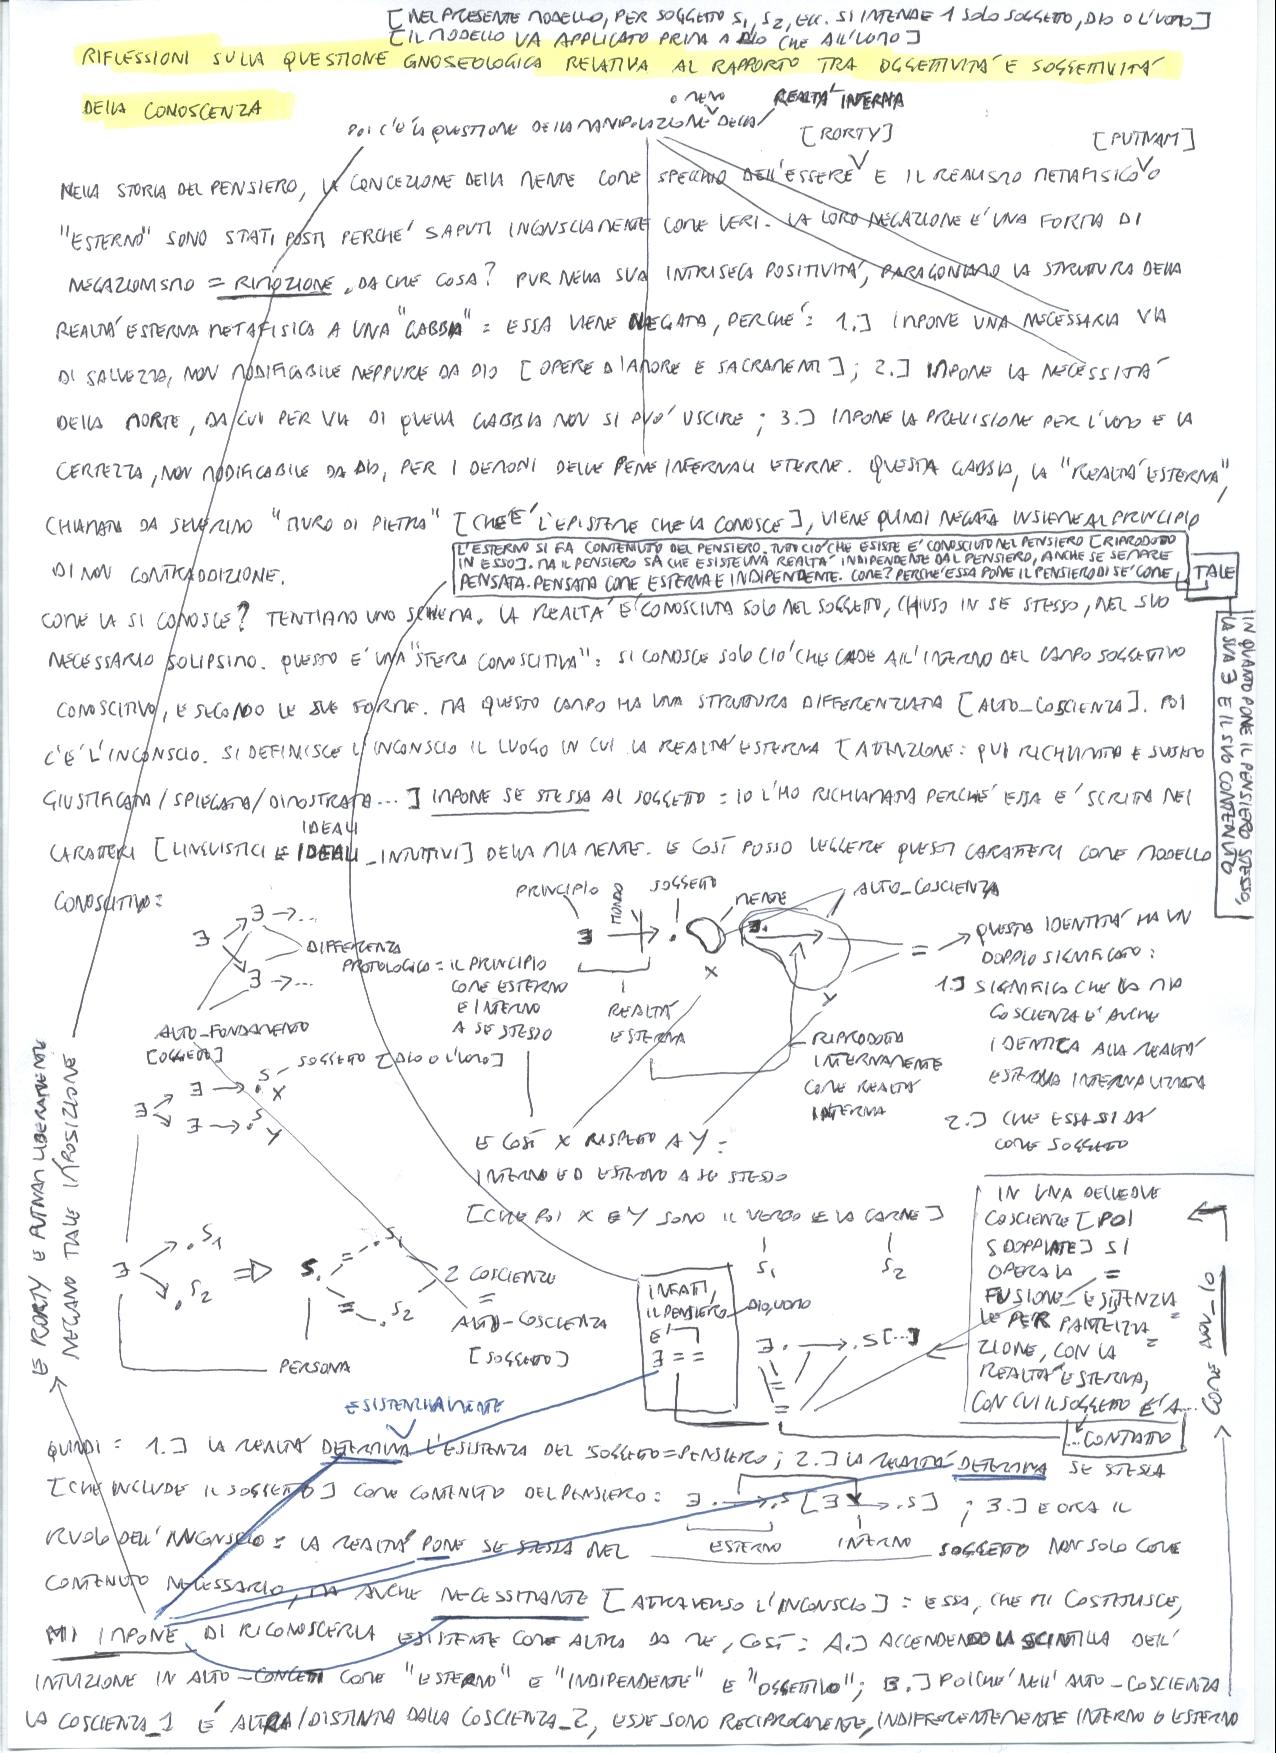 [NEL PRESENTE MODELLO, PER SOGGETTO S1, S2, ECC. SI INTENDE 1 SOLO SOGGETTO, DIO O L'UOMO]
[IL MODELLO VA APPLICATO PRIMA A DIO CHE ALL'UOMO]
RIFLESSIONI SULLA QUESTIONE GNOSEOLOGICA RELATIVA AL RAPPORTO TRA OGGETTIVITÀ E SOGGETTIVITÀ
DELLA CONOSCENZA
O MENO
REALTÀ INTERNA
POI C'È LA QUESTIONE DELLA MANIPOLAZIONE DELLA
[RORTY]
[PUTNAM]
NELLA STORIA DEL PENSIERO, LA CONCEZIONE DELLA MENTE COME SPECCHIO DELL'ESSERE E IL REALISMO METAFISICO O
"ESTERNO" SONO STATI POSTI PERCHÉ SAPUTI INCONSCIAMENTE COME VERI. LA LORO NEGAZIONE È UNA FORMA DI
NEGAZIONISMO = RIMOZIONE, DA CHE COSA? PUR NELLA SUA INTRISECA POSITIVITÀ, PARAGONIAMO LA STRUTTURA DELLA
REALTÀ ESTERNA METAFISICA A UNA "GABBIA": ESSA VIENE NEGATA, PERCHÉ: 1.] IMPONE UNA NECESSARIA VIA
DI SALVEZZA, NON MODIFICABILE NEPPURE DA DIO [OPERE D'AMORE E SACRAMENTI]; 2.] IMPONE LA NECESSITÀ
DELLA MORTE, DA CUI PER VIA DI QUELLA GABBIA NON SI PUÒ USCIRE; 3.] IMPONE LA PREVISIONE PER L'UOMO E LA
CERTEZZA, NON MODIFICABILE DA DIO, PER I DEMONI DELLE PENE INFERNALI ETERNE. QUESTA GABBIA, LA "REALTÀ ESTERNA",
CHIAMATA DA SEVERINO "MURO DI PIETRA" [CHE È L'EPISTEME CHE LA CONOSCE], VIENE QUINDI NEGATA INSIEME AL PRINCIPIO
DI NON CONTRADDIZIONE.
L'ESTERNO SI FA CONTENUTO DEL PENSIERO. TUTTO CIÒ CHE ESISTE È CONOSCIUTO NEL PENSIERO [RIPRODOTTO
IN ESSO]. MA IL PENSIERO SA CHE ESISTE UNA REALTÀ INDIPENDENTE DAL PENSIERO, ANCHE SE SEMPRE
PENSATA. PENSATA COME ESTERNA E INDIPENDENTE. COME? PERCHÉ ESSA PONE IL PENSIERO DI SÉ COME
TALE
IN QUANTO PONE IL PENSIERO STESSO,
LA SUA ∃ E IL SUO CONTENUTO
COME LA SI CONOSCE? TENTIAMO UNO SCHEMA. LA REALTÀ È CONOSCIUTA SOLO NEL SOGGETTO, CHIUSO IN SE STESSO, NEL SUO
NECESSARIO SOLIPSIMO. QUESTO È UNA "SFERA CONOSCITIVA": SI CONOSCE SOLO CIÒ CHE CADE ALL'INTERNO DEL CAMPO SOGGETTIVO
CONOSCITIVO, E SECONDO LE SUE FORME. MA QUESTO CAMPO HA UNA STRUTTURA DIFFERENZIATA [AUTO_COSCIENZA]. POI
C'È L'INCONSCIO. SI DEFINISCE L'INCONSCIO IL LUOGO IN CUI LA REALTÀ ESTERNA [ATTENZIONE: QUI RICHIAMATA E SUBITO
GIUSTIFICATA/SPIEGATA/DIMOSTRATA...] IMPONE SE STESSA AL SOGGETTO: IO L'HO RICHIAMATA PERCHÉ ESSA È SCRITTA NEI
IDEALI
CARATTERI [LINGUISTICI E IDEALI_INTUITIVI] DELLA MIA MENTE. E COSÌ POSSO LEGGERE QUESTI CARATTERI COME MODELLO
CONOSCITIVO:
∃ ∃ →... ∃ →...
DIFFERENZA
PROTOLOGICO = IL PRINCIPIO
COME ESTERNO
E INTERNO
A SE STESSO
AUTO_FONDAMENTO
[OGGETTO]
PRINCIPIO
MONDO
SOGGETTO
MENTE
AUTO_COSCIENZA
∃ → . X ∃. → Y =
REALTÀ
ESTERNA
RIPRODOTTA
INTERNAMENTE
COME REALTÀ
INTERNA
QUESTA IDENTITÀ HA UN
DOPPIO SIGNIFICATO:
1.] SIGNIFICA CHE LA MIA
COSCIENZA È ANCHE
IDENTICA ALLA REALTÀ
ESTERNA INTERNALIZZATA
2.] CHE ESSA SI DÀ
COME SOGGETTO
SOGGETTO [DIO O L'UOMO]
∃ ∃ → .S X
∃ → .S Y
E COSÌ X RISPETTO A Y:
INTERNO ED ESTERNO A SE STESSO
[CHE POI X E Y SONO IL VERBO E LA CARNE]
S1 S2
∃ .S1 .S2 ⇒ S. = .S1 = .S2
2 COSCIENZE
=
AUTO_COSCIENZA
[SOGGETTO]
PERSONA
INFATTI,
IL PENSIERO
È
∃ = =
DIO, UOMO
∃. → .S[...]
=
IN UNA DELLE DUE
COSCIENZE [POI
SDOPPIATE] SI
OPERA LA =
FUSIONE_ESISTENZIA
LE PER PARTECIPA
ZIONE, CON LA
REALTÀ ESTERNA,
CON CUI IL SOGGETTO È A...
...CONTATTO
COME NON_IO
E RORTY E PUTNAM LIBERAMENTE
NEGANO TALE IMPOSIZIONE
ESISTENZIALMENTE
QUINDI: 1.] LA REALTÀ DETERMINA L'ESISTENZA DEL SOGGETTO=PENSIERO; 2.] LA REALTÀ DETERMINA SE STESSA
[CHE INCLUDE IL SOGGETTO] COME CONTENUTO DEL PENSIERO: ∃. → .S [∃. → .S] ; 3.] E ORA IL
ESTERNO INTERNO
RUOLO DELL'INCONSCIO: LA REALTÀ PONE SE STESSA NEL SOGGETTO NON SOLO COME
CONTENUTO NECESSARIO, MA ANCHE NECESSITANTE [ATTRAVERSO L'INCONSCIO]: ESSA, CHE MI COSTITUISCE,
MI IMPONE DI RICONOSCERLA ESISTENTE COME ALTRO DA ME, COSÌ: A.] ACCENDENDO LA SCINTILLA DELL'
INTUIZIONE IN AUTO_CONCETTI COME "ESTERNO" E "INDIPENDENTE" E "OGGETTIVO"; B.] POICHÉ NELL'AUTO_COSCIENZA
LA COSCIENZA_1 È ALTRA/DISTINTA DALLA COSCIENZA_2, ESSE SONO RECIPROCAMENTE, INDIFFERENTEMENTE INTERNO O ESTERNO